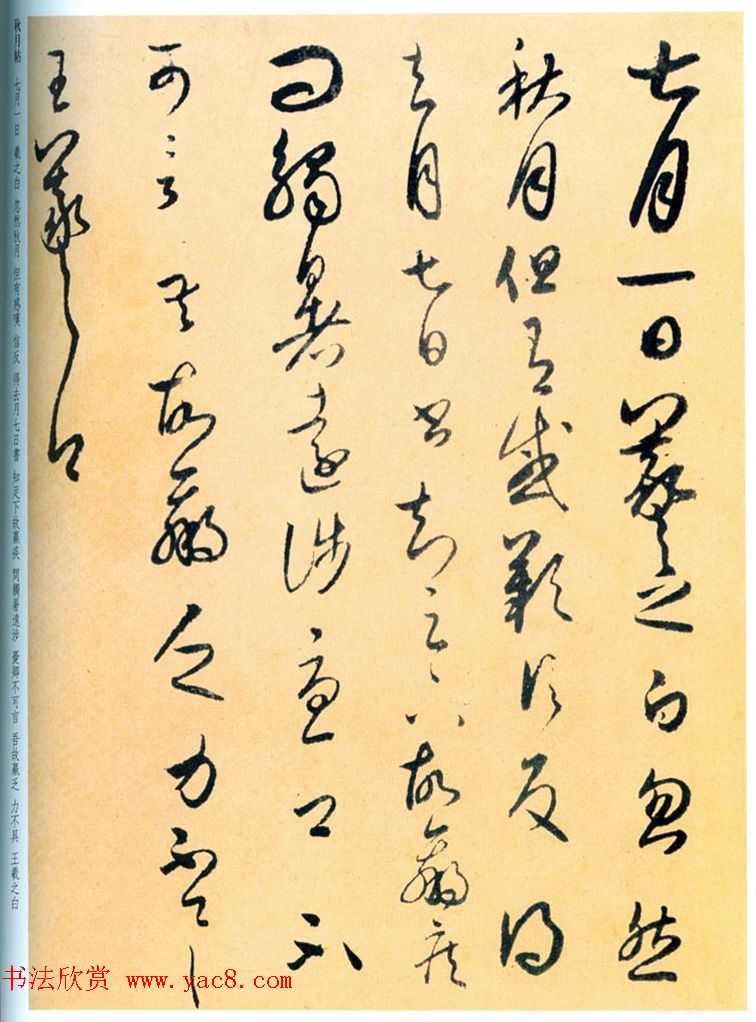 七月一日羲之白忽然
秋月但有感歎信反得
去月七日書知足下故羸疾
問觸暑遠涉憂卿不
可言吾故羸乏力不具
王羲之白
秋月帖 七月一日 羲之白 忽然秋月 但有感嘆 信反 得去月七日書 知足下故羸疾 問觸暑遠涉 憂卿不可言 吾故羸乏 力不具 王羲之白
书法欣赏 www.yac8.com